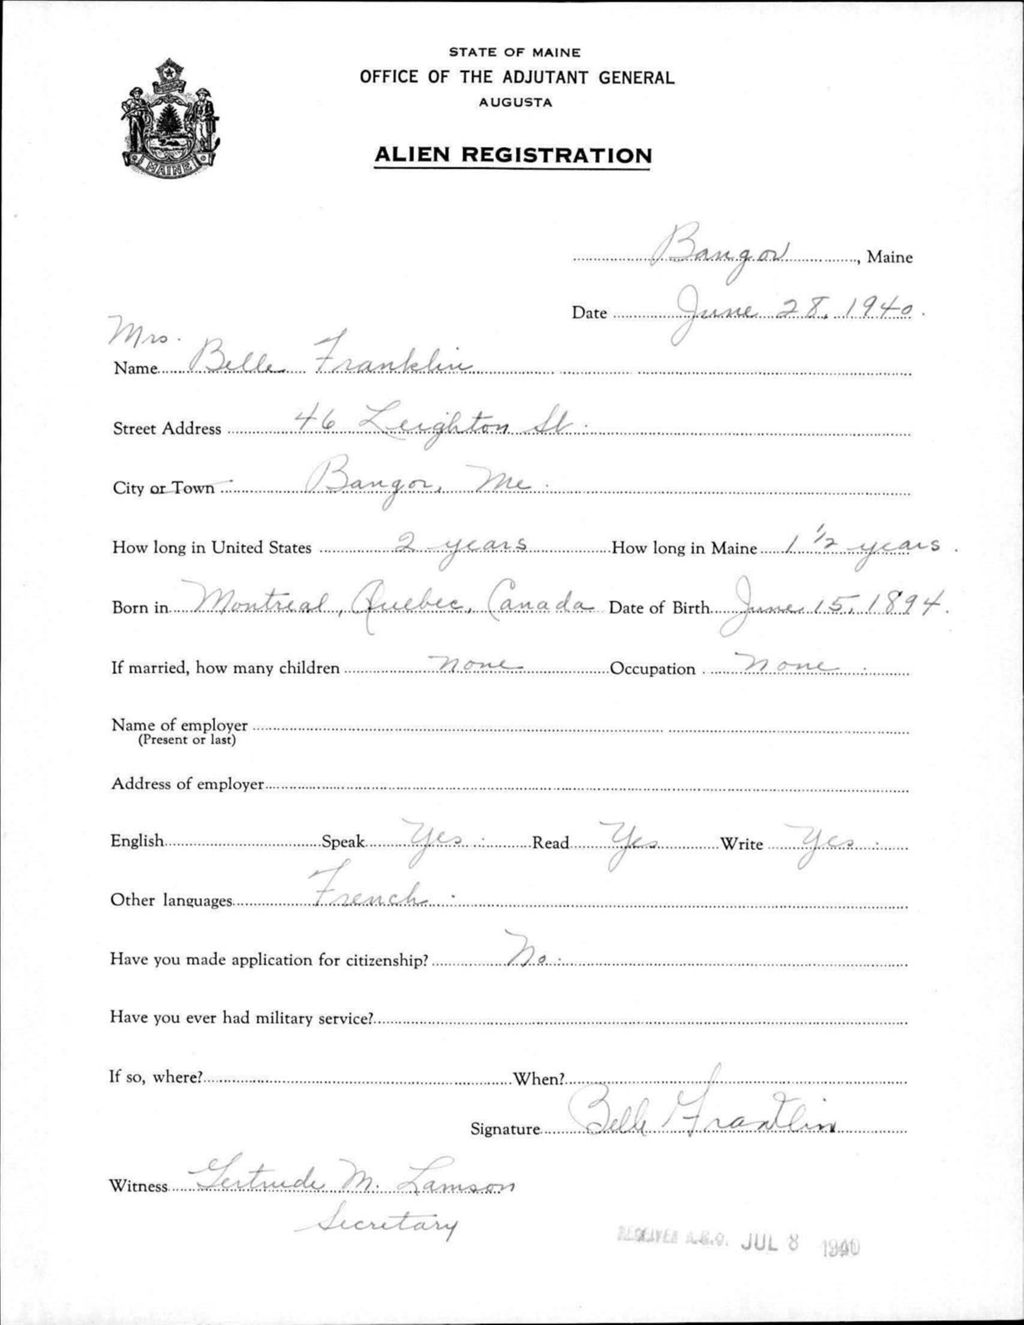 STATE OF MAINE
OFFICE OF THE ADJUTANT GENERAL
AUGUSTA
ALIEN REGISTRATION
MAINE
Bangor, Maine
Date June 28, 1940.
Mrs.
Name Belle Franklin
Street Address 46 Leighton St.
City or Town Bangor, Me.
How long in United States 2 years How long in Maine 1 1/2 years.
Born in Montreal, Quebec, Canada Date of Birth June 15, 1894.
If married, how many children None Occupation None.
Name of employer
(Present or last)
Address of employer
English Speak Yes. Read Yes Write Yes.
Other languages French.
Have you made application for citizenship? No.
Have you ever had military service?
If so, where? When?
Signature Belle Franklin
Witness Gertrude M. Lamson
Secretary
RECEIVED A.G.O. JUL 8 1940